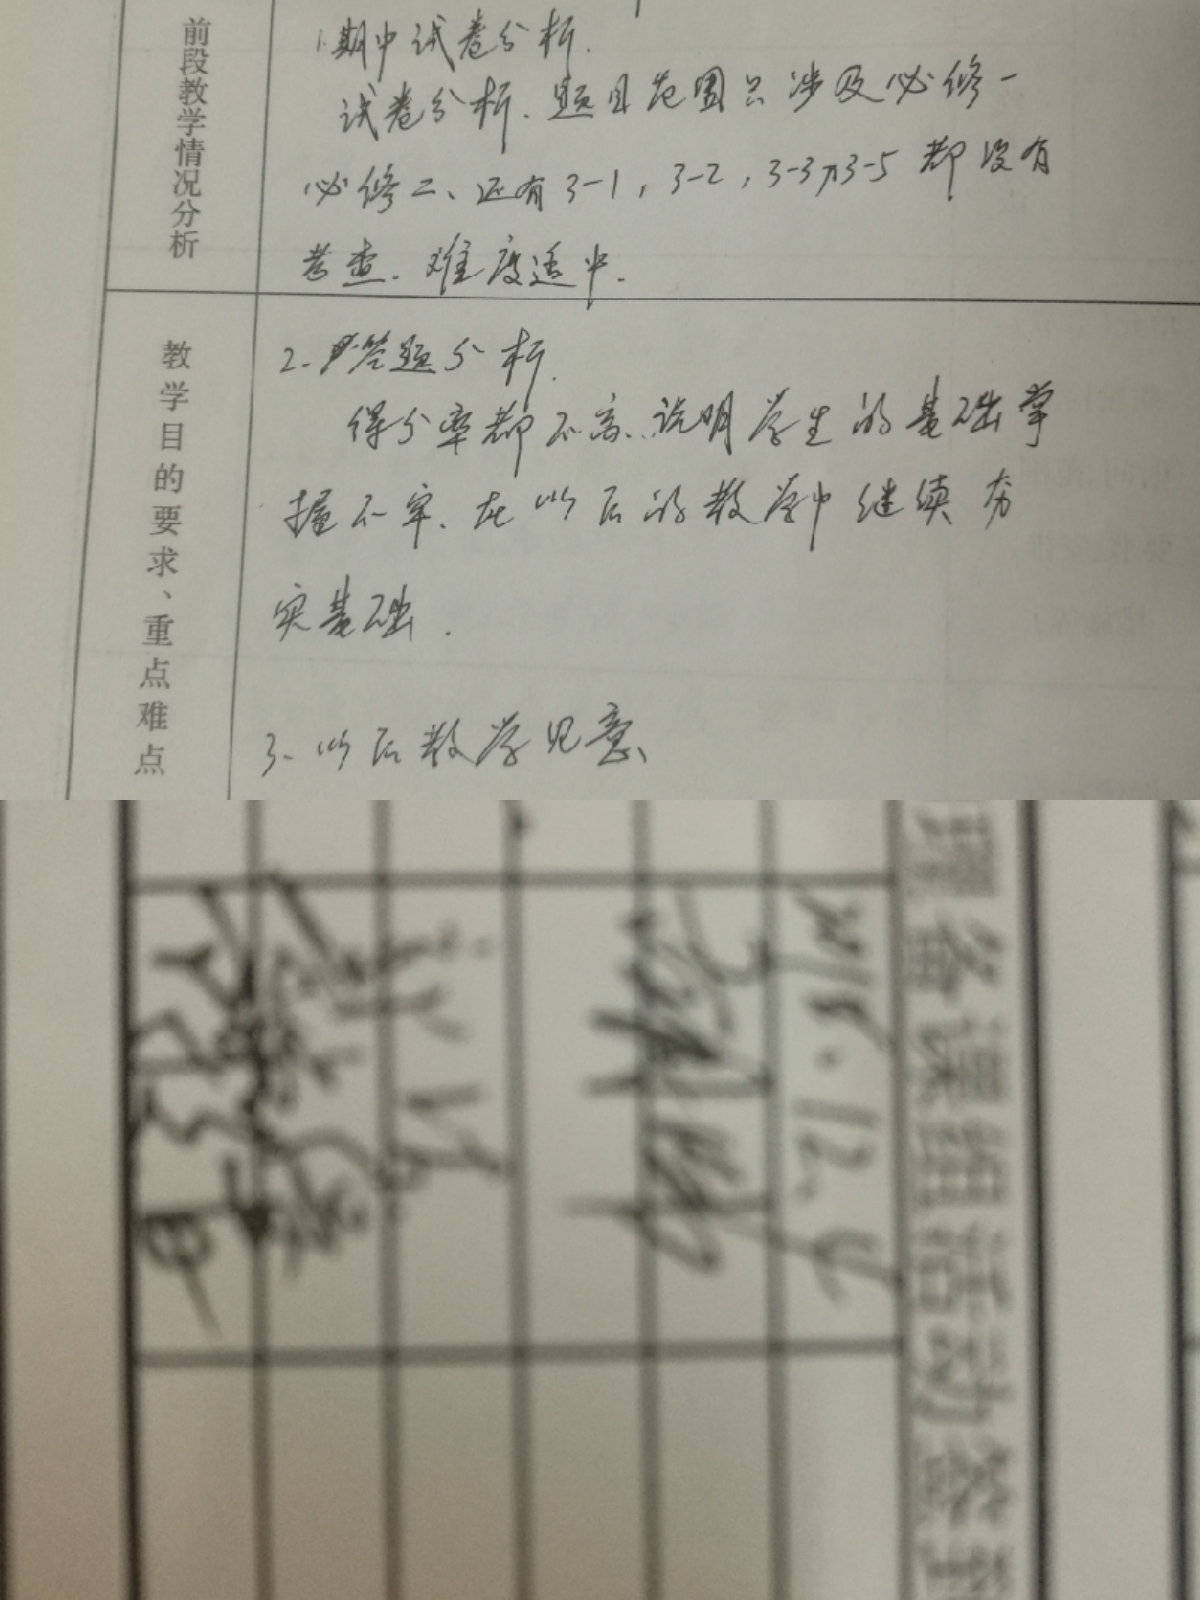 前段教学情况分析
1.期中试卷分析.
试卷分析.题目范围只涉及必修一
必修二、还有3-1,3-2,3-3,3-5都没有
考查.难度适中.
教学目的要求、重点难点
2.答题分析.
得分率都不高.说明学生的基础掌
握不牢.在以后的教学中继续夯
实基础.
3.以后教学见意
备课组活动签到
12.4